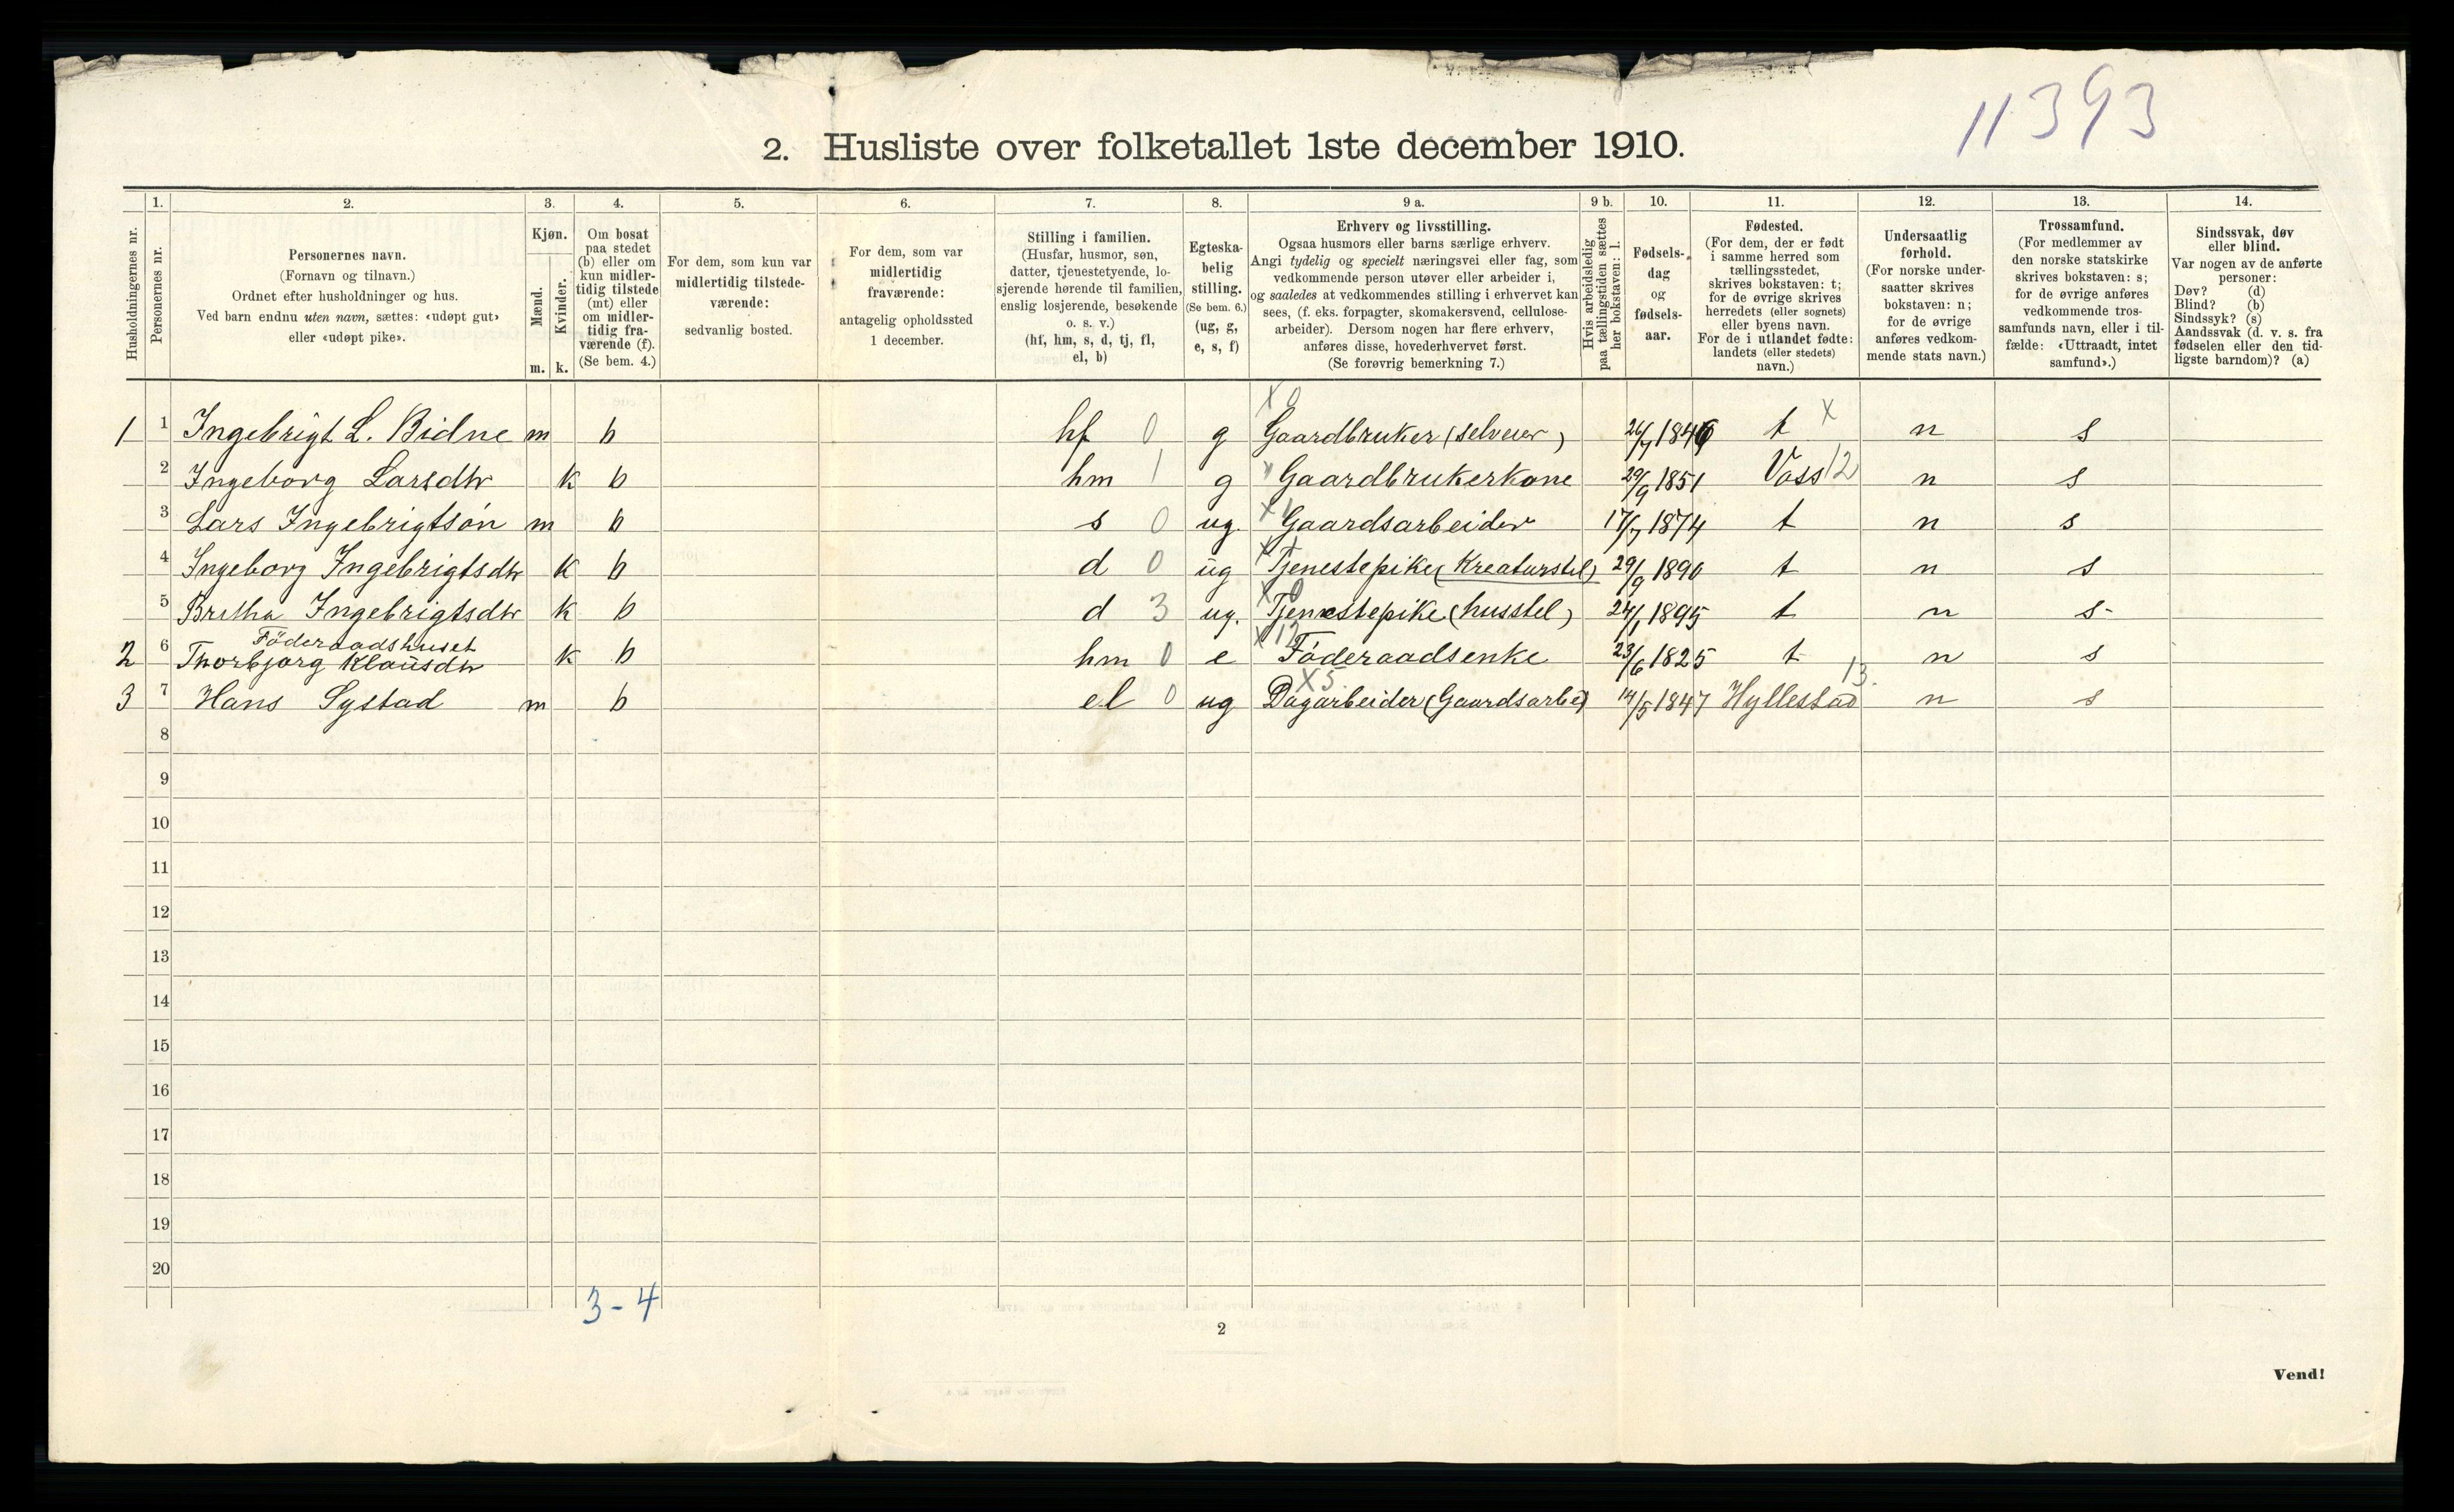 11393
2. Husliste over folketallet 1ste december 1910.
Husholdningernes nr.
1.
Personernes nr.
2.
Personernes navn.
(Fornavn og tilnavn.)
Ordnet efter husholdninger og hus.
Ved barn endnu uten navn, sættes: «udøpt gut»
eller «udøpt pike».
3.
Kjøn.
Mænd.
Kvinder.
m. k.
4.
Om bosat
paa stedet
(b) eller om
kun midler-
tidig tilstede
(mt) eller
om midler-
tidig fra-
værende (f).
(Se bem. 4.)
5.
For dem, som kun var
midlertidig tilstede-
værende:
sedvanlig bosted.
6.
For dem, som var
midlertidig
fraværende:
antagelig opholdssted
1 december.
7.
Stilling i familien.
(Husfar, husmor, søn,
datter, tjenestetyende, lo-
sjerende hørende til familien,
enslig losjerende, besøkende
o. s. v.)
(hf, hm, s, d, tj, fl,
el, b)
8.
Egteska-
belig
stilling.
(Se bem. 6.)
(ug, g,
e, s, f)
9 a.
Erhverv og livsstilling.
Ogsaa husmors eller barns særlige erhverv.
Angi tydelig og specielt næringsvei eller fag, som
vedkommende person utøver eller arbeider i,
og saaledes at vedkommendes stilling i erhvervet kan
sees, (f. eks. forpagter, skomakersvend, cellulose-
arbeider). Dersom nogen har flere erhverv,
anføres disse, hovederhvervet først.
(Se forøvrig bemerkning 7.)
9 b.
Hvis arbeidsledig
paa tællingstiden sættes
her bokstaven: l.
10.
Fødsels-
dag
og
fødsels-
aar.
11.
Fødested.
(For dem, der er født
i samme herred som
tællingsstedet,
skrives bokstaven: t;
for de øvrige skrives
herredets (eller sognets)
eller byens navn.
For de i utlandet fødte:
landets (eller stedets)
navn.)
12.
Undersaatlig
forhold.
(For norske under-
saatter skrives
bokstaven: n;
for de øvrige
anføres vedkom-
mende stats navn.)
13.
Trossamfund.
(For medlemmer av
den norske statskirke
skrives bokstaven: s;
for de øvrige anføres
vedkommende tros-
samfunds navn, eller i til-
fælde: «Uttraadt, intet
samfund».)
14.
Sindssvak, døv
eller blind.
Var nogen av de anførte
personer:
Døv? (d)
Blind? (b)
Sindssyk? (s)
Aandssvak (d. v. s. fra
fødselen eller den tid-
ligste barndom)? (a)
X 0
1 1 Ingebrigt L. Bidne m b hf 0 g Gaardbruker (selveier) 26/7 1846 t X n s
2 Ingeborg Larsdtr k b hm 1 g Gaardbrukerkone 29/9 1851 Voss 12 n s
3 Lars Ingebrigtsön m b s 0 ug. X 1 Gaardsarbeider 17/7 1874 t n s
4 Ingeborg Ingebrigtsdtr k b d 0 ug Tjenestepike (Kreaturstel) 29/9 1890 t n s
5 Bretha Ingebrigtsdtr k b d 3 ug. X 0 Tjenestepike (husstel) 24/1 1895 t n s
Föderaadshuset
2 6 Thorbjørg Klausdtr k b hm 0 e X 12 Föderaadsenke 23/6 1825 t n s
3 7 Hans Systad m b el 0 ug X 5 Dagarbeider (Gaardsarbei) 14/5 1847 Hyllestad 13. n s
8
9
10
11
12
13
14
15
16
17
18
19
20
3-4
2
Vend!